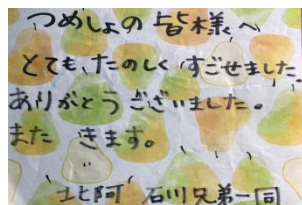 つめしょの皆様へ
とても、たのしくすごせました。
ありがとうございました。
また きます。
北阿 石川兄弟一同